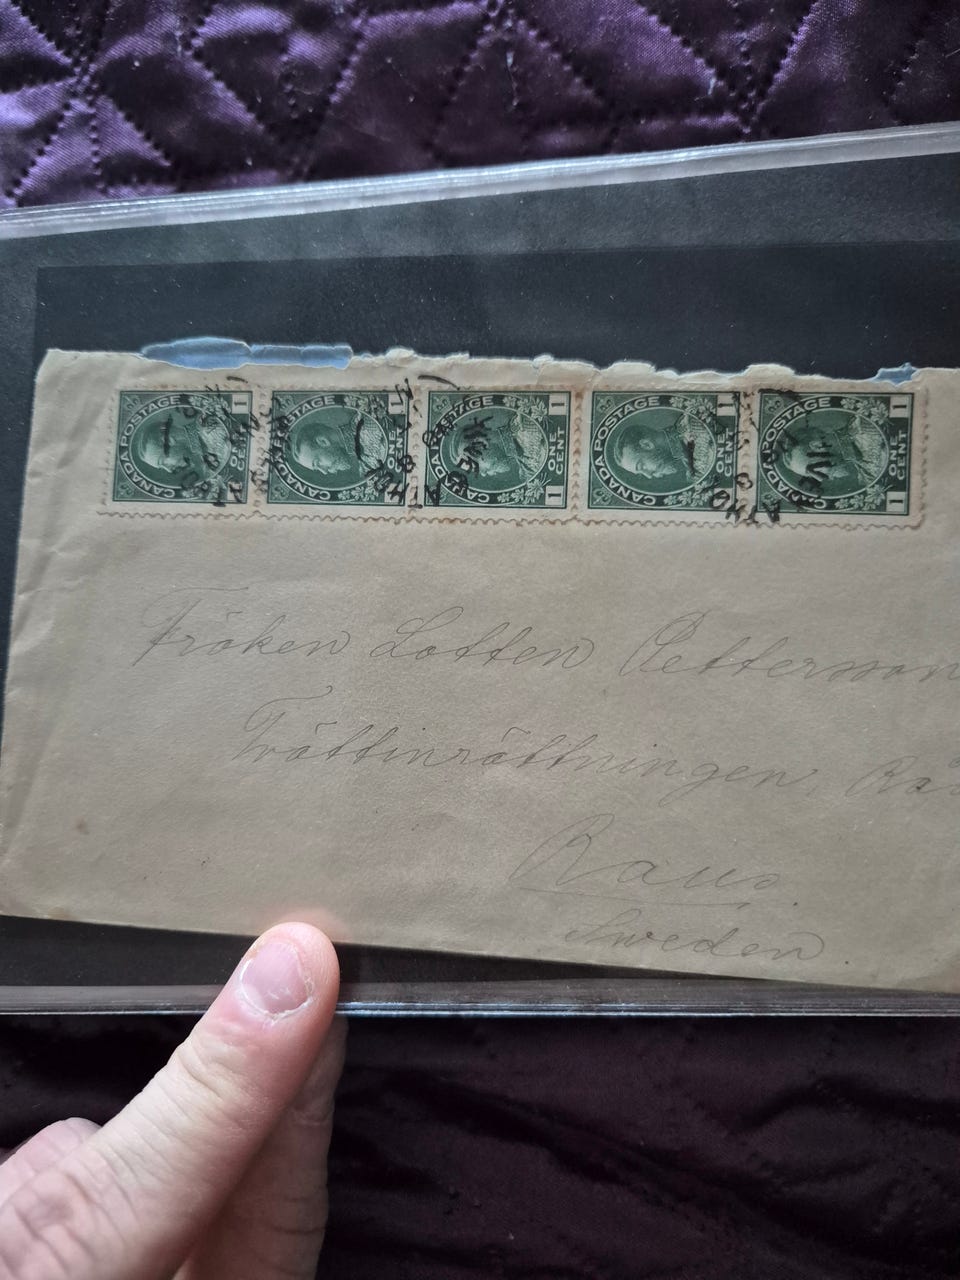 CANADA POSTAGE 1 ONE CENT 1
CANADA POSTAGE 1 ONE CENT 1
CANADA POSTAGE 1 ONE CENT 1
CANADA POSTAGE 1 ONE CENT 1
CANADA POSTAGE 1 ONE CENT 1
Fröken Lotten Pettersson
Tvättinrättningen,
Raus.
Sweden.